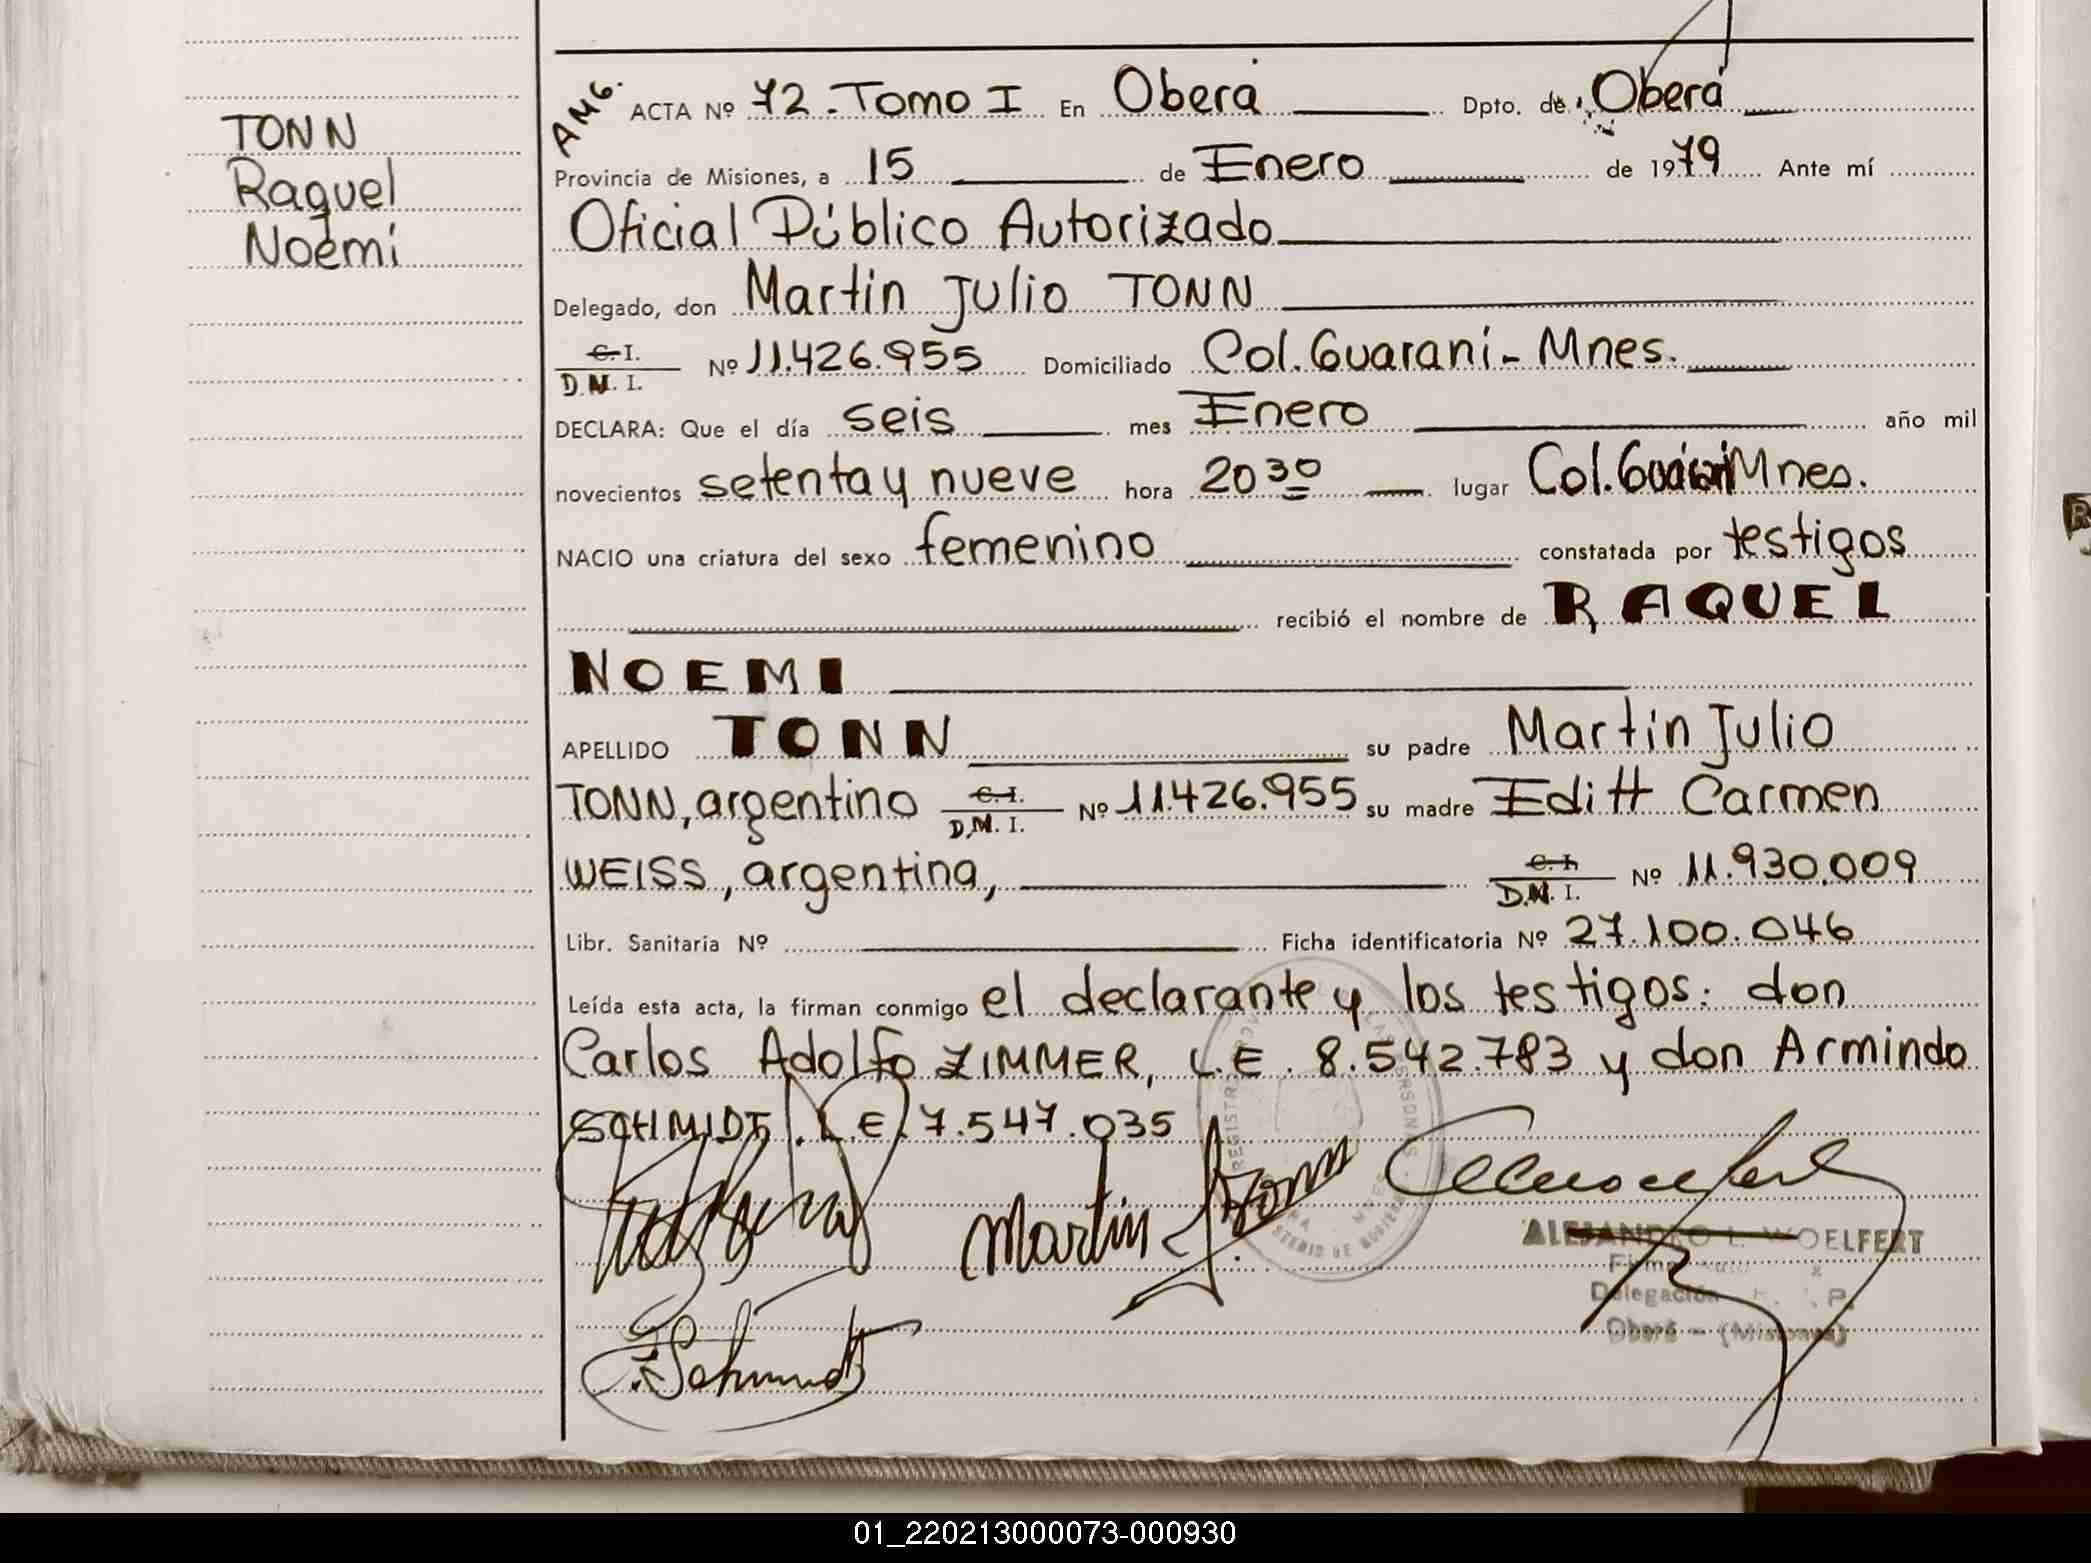 TONN
Raquel
Noemí
AMG.
ACTA Nº 72.Tomo I En Oberá Dpto. de Oberá
Provincia de Misiones, a 15 de Enero de 1979 Ante mí
Oficial Público Autorizado
Delegado, don Martin Julio TONN
C.I. D.N.I. Nº 11.426.955 Domiciliado Col.Guaraní-Mnes.
DECLARA: Que el día seis mes Enero año mil
novecientos setenta y nueve hora 20 30 lugar Col.Guaraní Mnes.
NACIO una criatura del sexo femenino constatada por testigos
recibió el nombre de RAQUEL
NOEMI
APELLIDO TONN su padre Martin Julio
TONN, argentino C.I. D.N.I. Nº 11.426.955 su madre Editt Carmen
WEISS, argentina, C.I. D.N.I. Nº 11.930.009
Libr. Sanitaria Nº Ficha identificatoria Nº 27.100.046
Leída esta acta, la firman conmigo el declarante y los testigos: don
Carlos Adolfo ZIMMER, L.E. 8.542.783 y don Armindo
SCHMIDT, L.E. 7.547.035
Martin J. Tonn
ALEJANDRO L. WOELFERT
Delegación
Oberá - (Misiones)
Schmidt
01_220213000073-000930